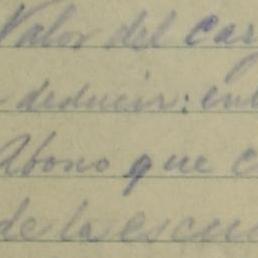 Valor del car
deducir: ent
Abono que c
de la escue